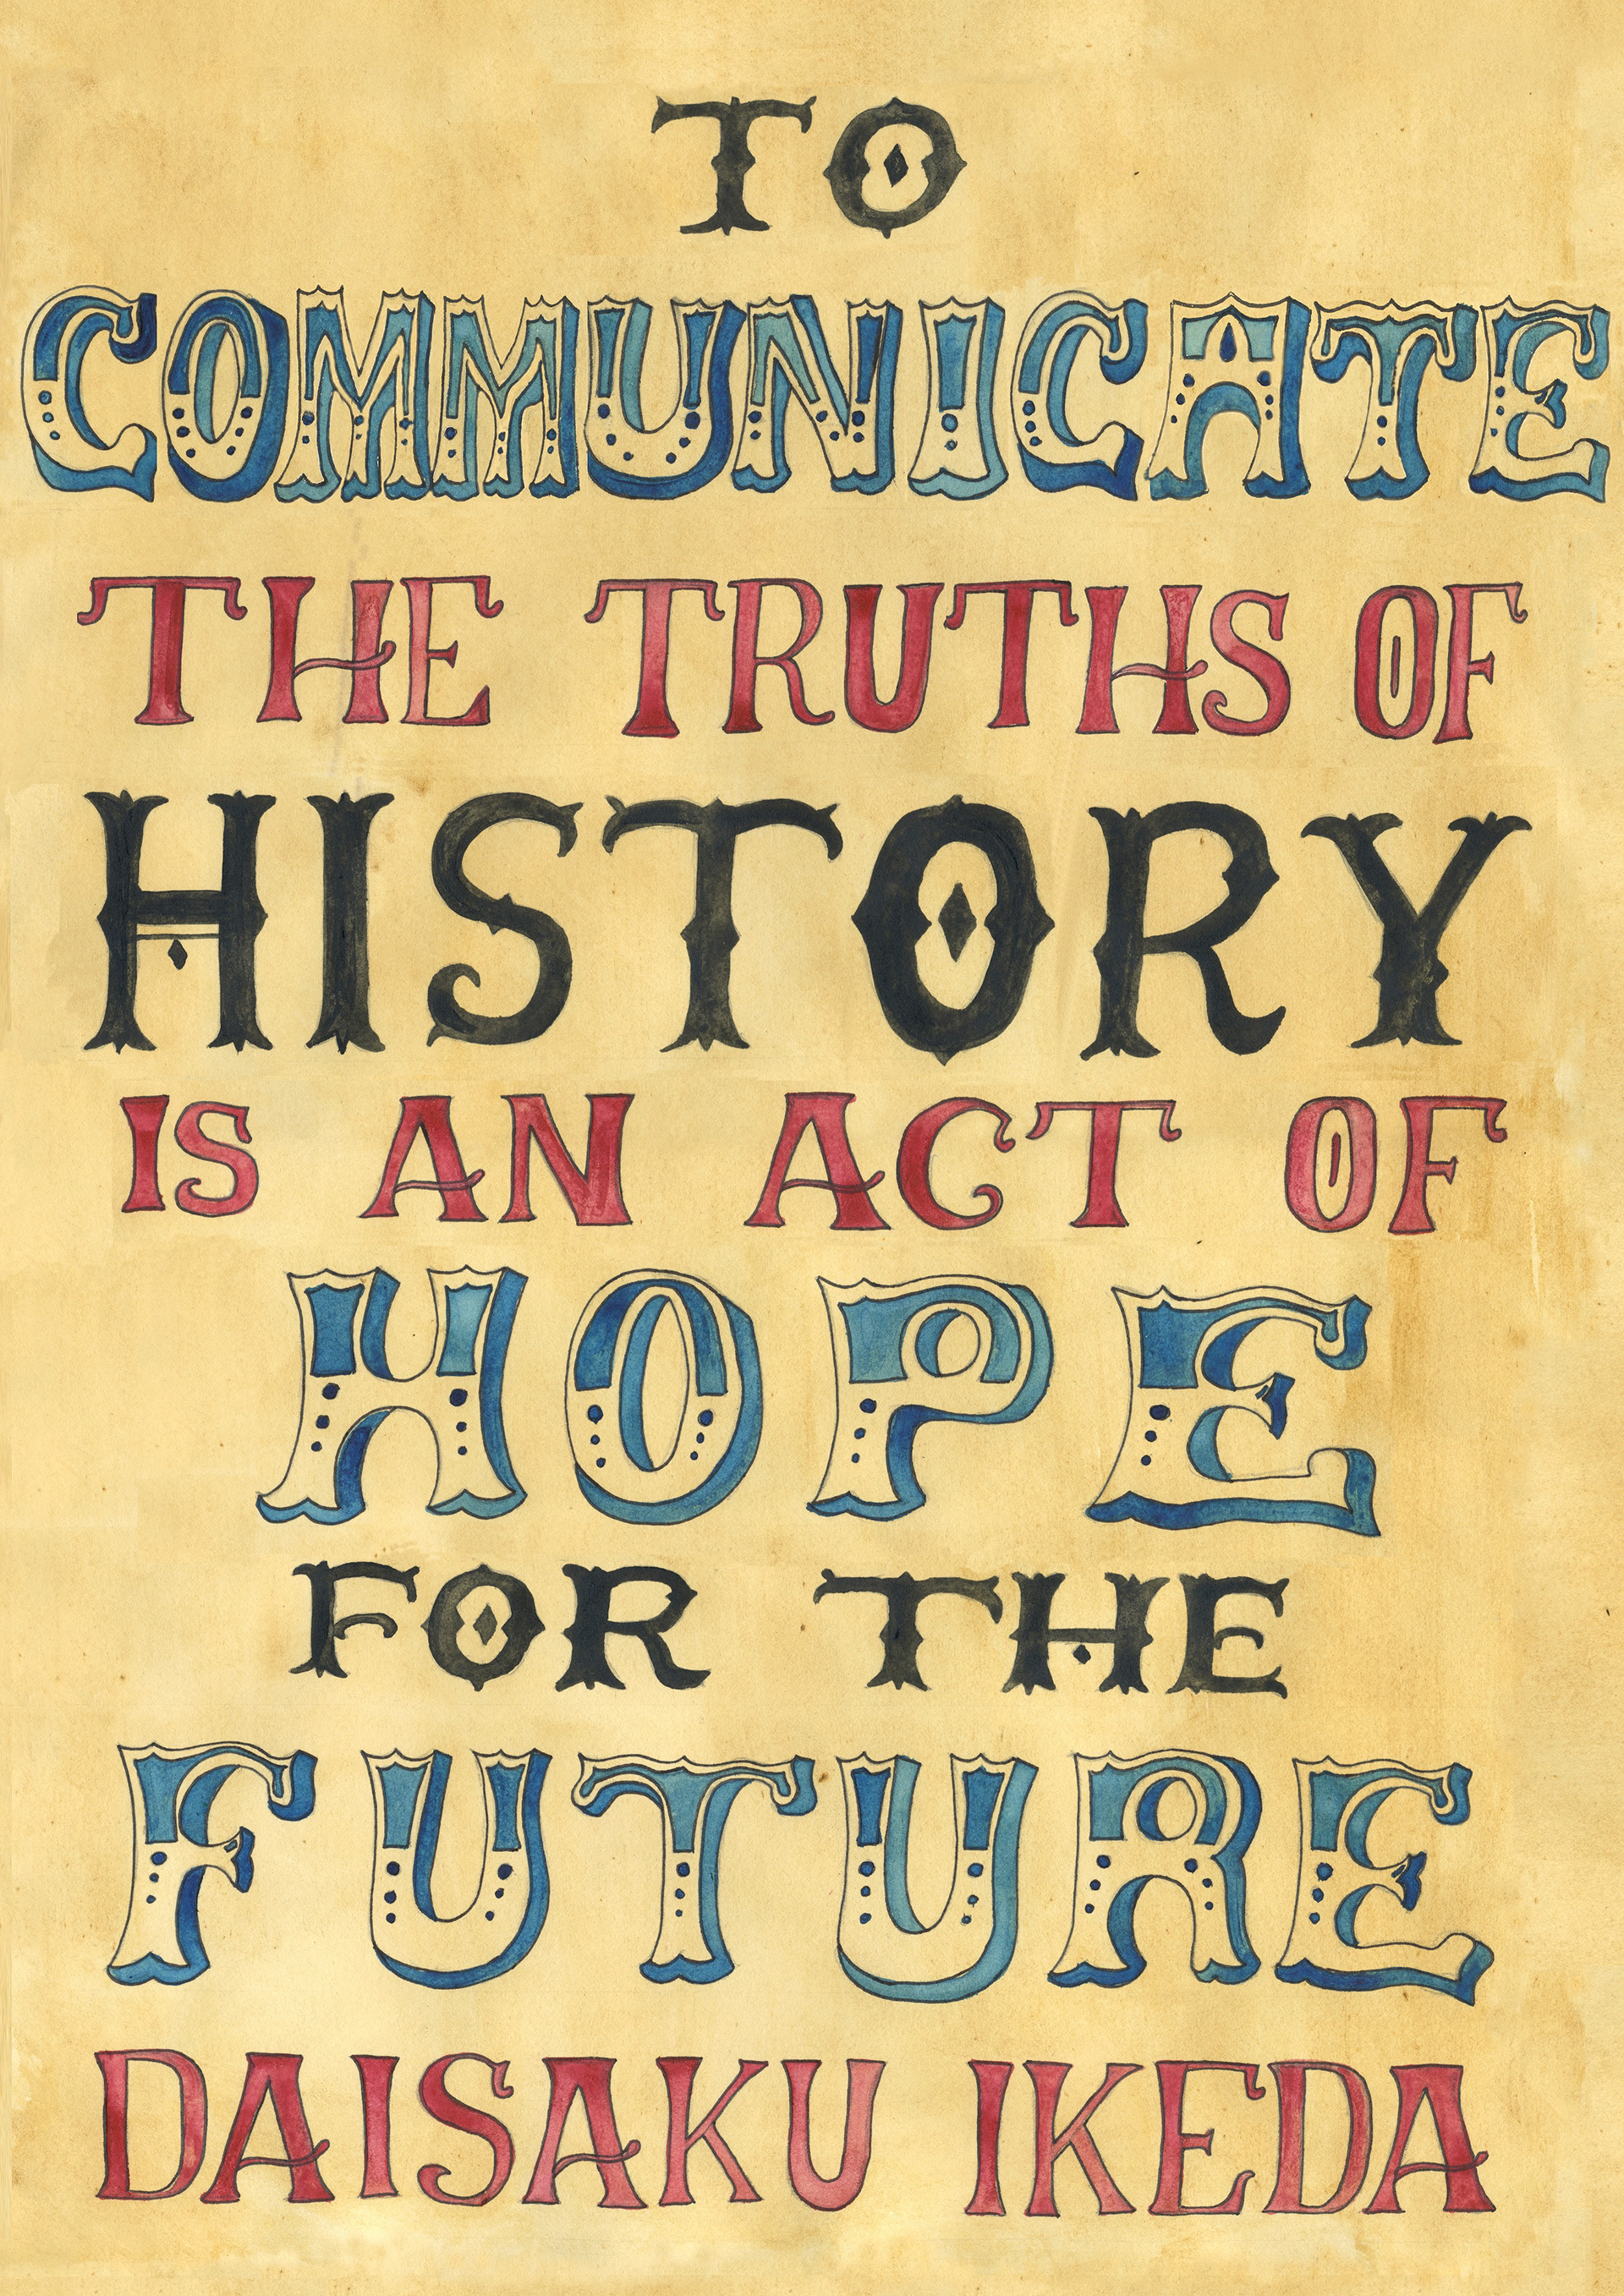 TO
COMMUNICATE
THE TRUTHS OF
HISTORY
IS AN ACT OF
HOPE
FOR THE
FUTURE
DAISAKU IKEDA